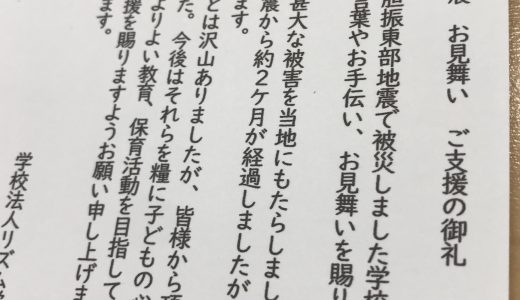 震 お見舞い ご支援の御礼
胆振東部地震で被災しました学校
言葉やお手伝い、お見舞いを賜り
甚大な被害を当地にもたらしまし
震から約２ケ月が経過しましたが
ます。
とは沢山ありましたが、皆様から頂
た。今後はそれらを糧に子どもの心
よりよい教育、保育活動を目指して
援を賜りますようお願い申し上げま
ます。
学校法人リズム学